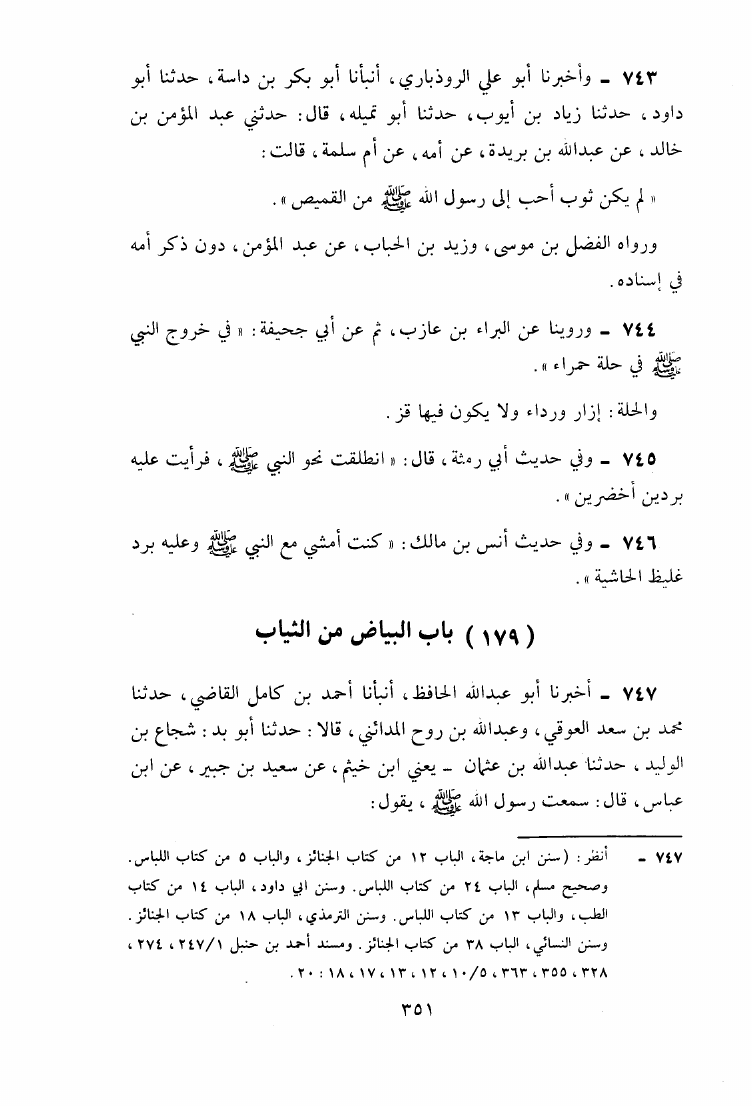 ٧٤٣ ـ وأخبرنا أبو علي الروذباري، أنبأنا أبو بكر بن داسة، حدثنا أبو
داود، حدثنا زياد بن أيوب، حدثنا أبو تميله، قال: حدثني عبد المؤمن بن
خالد، عن عبدالله بن بريدة، عن أمه، عن أم سلمة، قالت:
« لم يكن ثوب أحب إلى رسول الله ﷺ من القميص ».
ورواه الفضل بن موسى، وزيد بن الحباب، عن عبد المؤمن، دون ذكر أمه
في إسناده.
٧٤٤ ـ وروينا عن البراء بن عازب، ثم عن أبي جحيفة: « في خروج النبي
ﷺ في حلة حمراء ».
والحلة: إزار ورداء ولا يكون فيها قز.
٧٤٥ ـ وفي حديث أبي رمثة، قال: « انطلقت نحو النبي ﷺ، فرأيت عليه
بردين أخضرين ».
٧٤٦ ـ وفي حديث أنس بن مالك: « كنت أمشي مع النبي ﷺ وعليه برد
غليظ الحاشية ».
(١٧٩) باب البياض من الثياب
٧٤٧ ـ أخبرنا أبو عبدالله الحافظ، أنبأنا أحمد بن كامل القاضي، حدثنا
محمد بن سعد العوقي، وعبدالله بن روح المدائني، قالا: حدثنا أبو بد: شجاع بن
الوليد، حدثنا عبدالله بن عثمان ـ يعني ابن خيثم، عن سعيد بن جبير، عن ابن
عباس، قال: سمعت رسول الله ﷺ، يقول:
٧٤٧ ـ أنظر: (سنن ابن ماجة، الباب ١٢ من كتاب الجنائز، والباب ٥ من كتاب اللباس.
وصحيح مسلم، الباب ٢٤ من كتاب اللباس. وسنن ابي داود، الباب ١٤ من كتاب
الطب، والباب ١٣ من كتاب اللباس. وسنن الترمذي، الباب ١٨ من كتاب الجنائز.
وسنن النسائي، الباب ٣٨ من كتاب الجنائز. ومسند أحمد بن حنبل ٢٤٧/١، ٢٧٤،
٣٢٨، ٣٥٥، ٣٦٣، ١٠/٥، ١٢، ١٣، ١٧، ١٨: ٢٠.
٣٥١